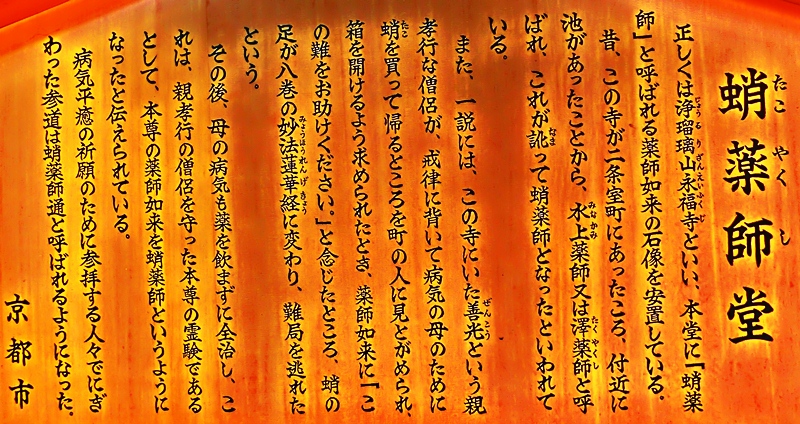 蛸薬師堂
たこやくし
正しくは浄瑠璃山永福寺といい、本堂に「蛸薬
じょうるりざんえいふくじ
師」と呼ばれる薬師如来の石像を安置している。
昔、この寺が二条室町にあったころ、付近に
池があったことから、水上薬師又は澤薬師と呼
みなかみ
たくやくし
ばれ、これが訛って蛸薬師となったといわれて
なま
いる。
また、一説には、この寺にいた善光という親
ぜんこう
孝行な僧侶が、戒律に背いて病気の母のために
蛸を買って帰るところを町の人に見とがめられ、
たこ
箱を開けるよう求められたとき、薬師如来に「こ
の難をお助けください。」と念じたところ、蛸の
足が八巻の妙法蓮華経に変わり、難局を逃れた
みょうほうれんげきょう
という。
その後、母の病気も薬を飲まずに全治し、こ
れは、親孝行の僧侶を守った本尊の霊験である
として、本尊の薬師如来を蛸薬師というように
なったと伝えられている。
病気平癒の祈願のために参拝する人々でにぎ
わった参道は蛸薬師通と呼ばれるようになった。
京都市